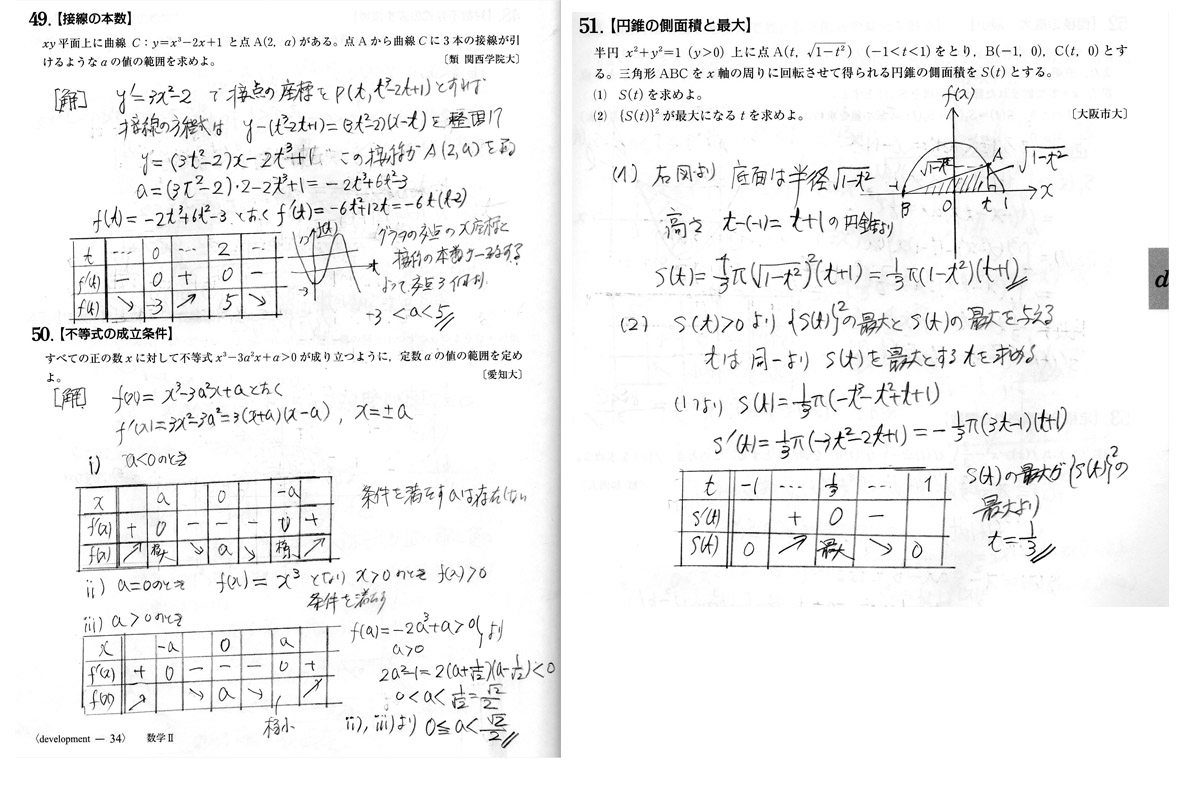 49.【接線の本数】
xy平面上に曲線 C：y=x³−2x+1 と点A(2, a)がある。点Aから曲線Cに3本の接線が引
けるようなaの値の範囲を求めよ。
〔類 関西学院大〕
[解] y'=3x²−2 で 接点の座標を P(t, t³−2t+1)とすれば
接線の方程式は y−(t³−2t+1)=(3t²−2)(x−t) を整理して
y=(3t²−2)x−2t³+1 この接線が A(2,a)を通る
a=(3t²−2)・2−2t³+1=−2t³+6t²−3
f(t)=−2t³+6t²−3 とおく f'(t)=−6t²+12t=−6t(t−2)
t … 0 … 2 …
f'(t) − 0 + 0 −
f(t) ↘ −3 ↗ 5 ↘
f(t)
t
−3
グラフの交点のx座標と
接線の本数が一致する
よって交点3個
−3<a<5
50.【不等式の成立条件】
すべての正の数xに対して不等式 x³−3a²x+a>0 が成り立つように，定数aの値の範囲を定め
よ。
〔愛知大〕
[解] f(x)=x³−3a²x+a とおく
f'(x)=3x²−3a²=3(x+a)(x−a), x=±a
i) a<0のとき
x a 0 −a
f'(x) + 0 − − − 0 +
f(x) ↗ 極大 ↘ a ↘ 極小 ↗
条件を満たすaは存在しない
ii) a=0のとき f(x)=x³ となり x>0のとき f(x)>0
条件を満たす
iii) a>0のとき
x −a 0 a
f'(x) + 0 − − − 0 +
f(x) ↗ ↘ a ↘ ↗
極小
f(a)=−2a³+a>0 より
a>0
2a²−1=2(a+1/√2)(a−1/√2)<0
0<a<1/√2=√2/2
ii), iii)より 0≦a<√2/2
〈development — 34〉 数学Ⅱ
51.【円錐の側面積と最大】
半円 x²+y²=1 (y>0) 上に点A(t, √1−t²) (−1<t<1)をとり，B(−1, 0)，C(t, 0)とす
る。三角形ABCをx軸の周りに回転させて得られる円錐の側面積をS(t)とする。
(1) S(t)を求めよ。
(2) {S(t)}² が最大になるtを求めよ。
〔大阪市大〕
f(x)
√1−t²
A
√1−t²
−1
B 0 t 1 x
(1) 右図より 底面は半径√1−t²
高さ t−(−1)=t+1の円錐より
S(t)=1/3π(√1−t²)²(t+1)=1/3π(1−t²)(t+1)
(2) S(t)>0より {S(t)}²の最大とS(t)の最大を与える
tは同一より S(t)を最大とするtを求める。
(1)より S(t)=1/3π(−t³−t²+t+1)
S'(t)=1/3π(−3t²−2t+1)=−1/3π(3t−1)(t+1)
t −1 … 1/3 … 1
S'(t) + 0 −
S(t) 0 ↗ 最大 ↘ 0
S(t)の最大が{S(t)}²の
最大より
t=1/3
d